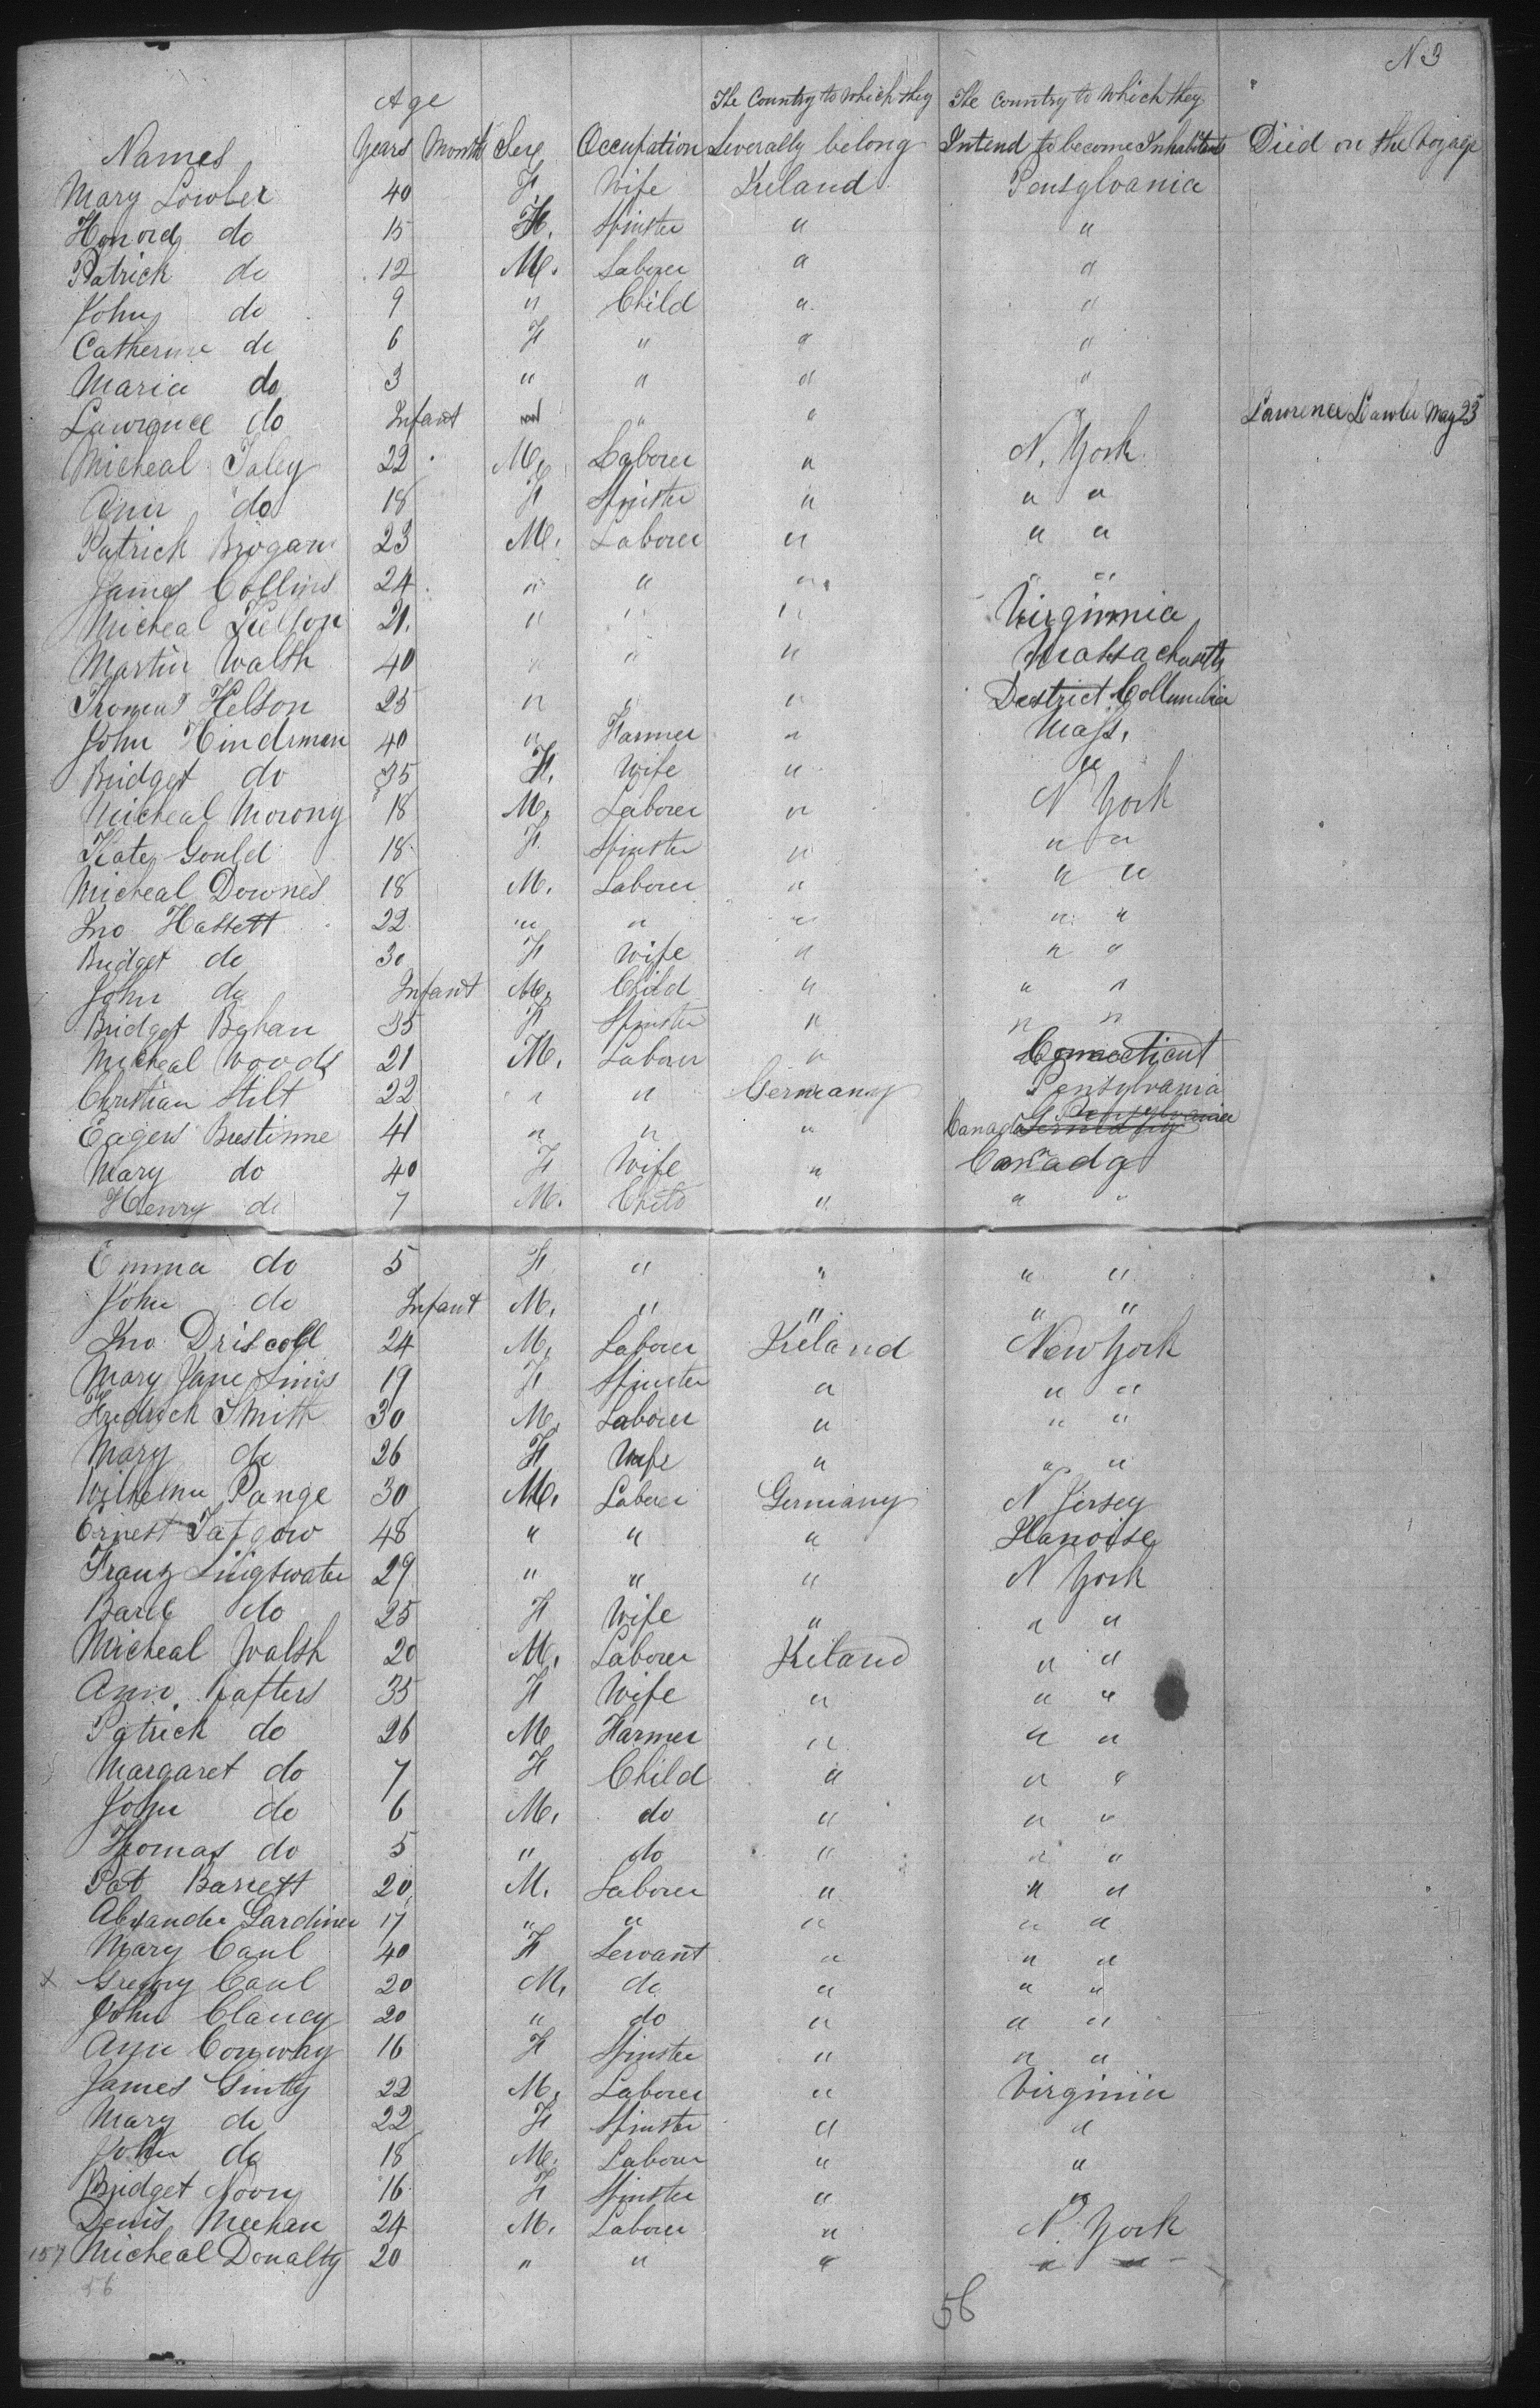 N 3
Age The Country to which they The Country to which they
Names Years Month Sex Occupation Severally belong Intend to become Inhabitants Died on the Voyage
Mary Lowler 40 F Wife Ireland Pensylvania
Honord do 15 F. Spinster " "
Patrick do 12 M. Laborer " "
John do 9 " Child " "
Catherine do 6 F " " "
Maria do 3 " " " "
Lawrence do Infant " " Lawrence Lawler May 25
Micheal Foley 22 M. Laborer " N. York
Ann do 18 F Spinster " " "
Patrick Brogan 23 M. Laborer " " "
James Collins 24 " " " " "
Micheal 21. " " " Virginnia
Martin Walsh 40 " " " Massachusetts
Thomas Helson 25 " " " Destrict Collumbia
John Hindsman 40 " Farmer " Mass.
Bridget do 35 F. Wife " "
Micheal Morony 18 M. Laborer " N York
Kate Gould 18 F. Spinster " " "
Micheal Downes 18 M. Laborer " " "
Jno Hassett 22 " " " " "
Bridget do 30 F Wife " " "
John do Infant M. Child " " "
Bridget Behan 35 F Spinster " " "
Micheal Woods 21 M. Laborer " Connecticut
Christian Stilt 22 " " Germany Pensylvania
Eagen Brustinne 41 " " " Canada
Mary do 40 F Wife " Canada
Henry do 7 M. Child " " "
Emma do 5 F " " " "
John do Infant M. " " " "
Jno Driscoll 24 M. Laborer Ireland New York
Mary Jane Sinis 19 F Spinster " " "
Fredrick Smith 30 M. Laborer " " "
Mary do 26 F Wife " " "
Wilhelm Pange 30 M. Laborer Germany N Jersey
Ernest Tafgow 48 " " " Hanoise
Franz Lingswater 29 " " " N York
Barb do 25 F Wife " " "
Micheal Walsh 20 M. Laborer Ireland " "
Ann Rafters 35 F Wife " " "
Patrick do 26 M Farmer " " "
Margaret do 7 F Child " " "
John do 6 M. do " " "
Thomas do 5 " do " " "
Pat Barrett 20 M. Laborer " " "
Alexander Gardiner 17 " " " " "
Mary Caul 40 F Servant " " "
x Greeny Caul 20 M. do " " "
John Clancy 20 " do " " "
Ann Conway 16 F Spinster " " "
James Ginty 22 M. Laborer " Virginia
Mary do 22 F Spinster " "
John do 18 M. Laborer " "
Bridget Noon 16 F Spinster " "
Denis Meehan 24 M. Laborer " N. York
157 Micheal Donalty 20 " " " " "
56 56